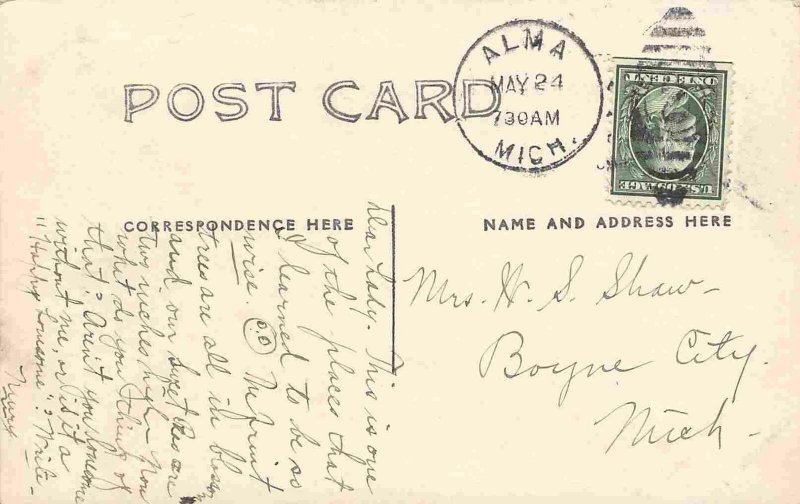 POST CARD
ALMA
MAY 24
730AM
MICH.
ONE CENT
U.S. POSTAGE
CORRESPONDENCE HERE
NAME AND ADDRESS HERE
Dear Lady. This is one
of the places that
I learned to be so
wise. My fruit
trees are all in blossom
and our Sweet Peas are
two inches high. Now
what do you think of
that? Aren't you lonesome
without me, or is it a
"Happy Lonesome"? Write
Mary
Mrs. H. S. Shaw
Boyne City.
Mich.